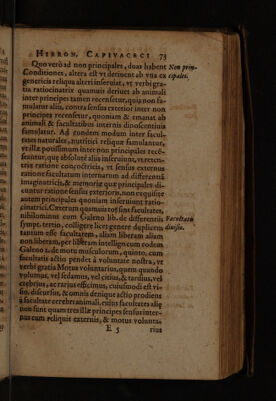 HIERON. CAPIVACCI 73
Quo verò ad non principales, duas habent
Conditiones, altera est vt deriuet ab vna ex
genericis reliqua alteri inseruiat, vt verbi gra-
tia ratiocinatrix quamuis deriuet ab animali
inter principes tamen recensetur, quia non fa-
mulatur alii, contra exterior inter non
principes recensetur, quoniam & emanat ab
animali & facultatibus internis dinoscentiis
famulatur. Ad eundem modum inter facul-
tates naturales, nutritici reliquæ famulantur,
vt illæ potissimum inter non principales
seantur, quę absolutè aliis inseruiunt, vt reten-
trix ratione concoctricis, vt sensus externus
ratione facultatum internarum ad differentiã
imaginatricis, & memoriæ quæ principales di-
cuntur ratione sensus exterioris, non exquisitè
autem principales quoniam inseruiunt ratio-
cinatrici. Cæterum quamuis tot sint facultates,
nihilominus cum Galeno lib. de differentiis
sympt. tertio, colligere licet genere duplicem
tantum esse facultatem, aliam liberam aliam
non liberam, per liberam intelligit cum eodem
Galeno 2. de motu musculorum, quinto, cum
facultatis actio pendet à voluntate nostra, vt
verbi gratia Motus voluntarius, quem quando
volumus, vel sedamus, vel citius, & tardius, vel
crebrius, ac rarius efficimus, cuiusmodi est vi-
sio, discursus, & omnis denique actio prodiens
à facultate cerebri animali, cuius facultates aliæ
non sunt quam tres illæ principes sensus inter-
nus cum reliquis externis, & motus volunta-
E 5 rius
Non prin-
cipales.
Facultatū
diuisio.